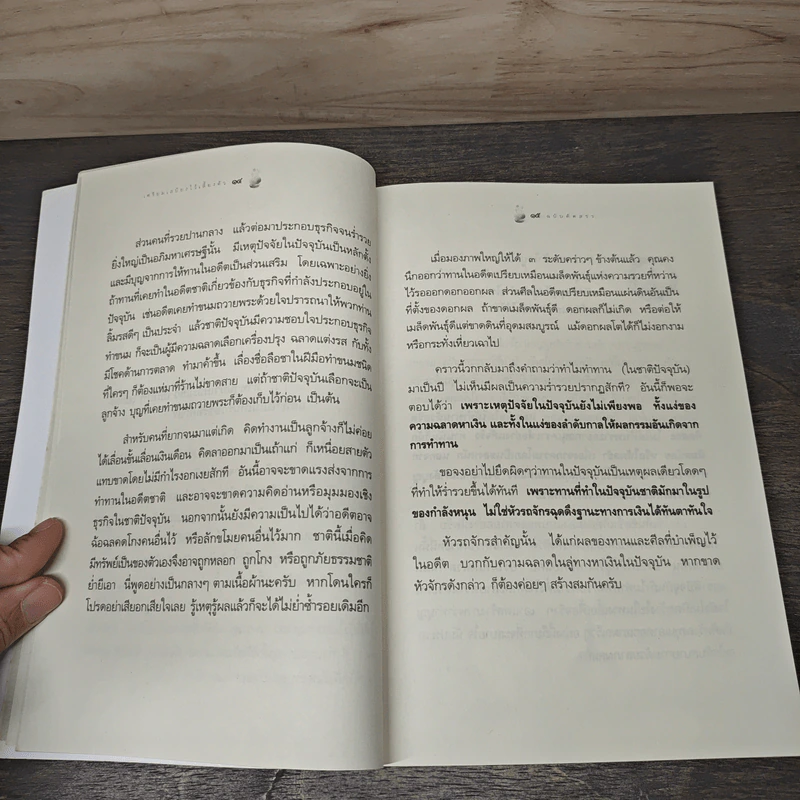 เตรียมเสบียงไว้เลี้ยงตัว ๑๔
ส่วนคนที่รวยปานกลาง แล้วต่อมาประกอบธุรกิจจนร่ำรวย
ยิ่งใหญ่เป็นอภิมหาเศรษฐีนั้น มีเหตุปัจจัยในปัจจุบันเป็นหลักตั้ง
และมีบุญจากการให้ทานในอดีตเป็นส่วนเสริม โดยเฉพาะอย่างยิ่ง
ถ้าทานที่เคยทำในอดีตชาติเกี่ยวข้องกับธุรกิจที่กำลังประกอบอยู่ใน
ปัจจุบัน เช่นอดีตเคยทำขนมถวายพระด้วยใจปรารถนาให้พวกท่าน
ลิ้มรสดีๆ เป็นประจำ แล้วชาติปัจจุบันมีความชอบใจประกอบธุรกิจ
ทำขนม ก็จะเป็นผู้มีความฉลาดเลือกเครื่องปรุง ฉลาดแต่งรส กับทั้ง
มีโชคด้านการตลาด ทำมาค้าขึ้น เลื่องชื่อลือชาในฝีมือทำขนมชนิด
ที่ใครๆ ก็ต้องแห่มาที่ร้านไม่ขาดสาย แต่ถ้าชาติปัจจุบันเลือกจะเป็น
ลูกจ้าง บุญที่เคยทำขนมถวายพระก็ต้องเก็บไว้ก่อน เป็นต้น
สำหรับคนที่ยากจนมาแต่เกิด คิดทำงานเป็นลูกจ้างก็ไม่ค่อย
ได้เลื่อนขั้นเลื่อนเงินเดือน คิดลาออกมาเป็นเถ้าแก่ ก็เหนื่อยสายตัว
แทบขาดโดยไม่มีกำไรงอกเงยสักที อันนี้อาจจะขาดแรงส่งจากการ
ทำทานในอดีตชาติ และอาจจะขาดความคิดอ่านหรือมุมมองเชิง
ธุรกิจในชาติปัจจุบัน นอกจากนั้นยังมีความเป็นไปได้ว่าอดีตอาจ
ฉ้อฉลคดโกงคนอื่นไว้ หรือลักขโมยคนอื่นไว้มาก ชาตินี้เมื่อคิด
มีทรัพย์เป็นของตัวเองจึงอาจถูกหลอก ถูกโกง หรือถูกภัยธรรมชาติ
ย่ำยีเอา นี่พูดอย่างเป็นกลางๆ ตามเนื้อผ้านะครับ หากโดนใครก็
โปรดอย่าเสียอกเสียใจเลย รู้เหตุรู้ผลแล้วก็จะได้ไม่ย่ำซ้ำรอยเดิมอีก
๑๕ ฉบับติดดาว
เมื่อมองภาพใหญ่ให้ได้ ๓ ระดับคร่าวๆ ข้างต้นแล้ว คุณคง
นึกออกว่าทานในอดีตเปรียบเหมือนเมล็ดพันธุ์แห่งความรวยที่หว่าน
ไว้รอออกดอกออกผล ส่วนศีลในอดีตเปรียบเหมือนแผ่นดินอันเป็น
ที่ตั้งของดอกผล ถ้าขาดเมล็ดพันธุ์ดี ดอกผลก็ไม่เกิด หรือต่อให้
เมล็ดพันธุ์ดีแต่ขาดดินที่อุดมสมบูรณ์ แม้ดอกผลโตได้ก็ไม่งอกงาม
หรือกระทั่งเหี่ยวเฉาไป
คราวนี้วกกลับมาถึงคำถามว่าทำไมทำทาน (ในชาติปัจจุบัน)
มาเป็นปี ไม่เห็นมีผลเป็นความร่ำรวยปรากฏสักที? อันนี้ก็พอจะ
ตอบได้ว่า เพราะเหตุปัจจัยในปัจจุบันยังไม่เพียงพอ ทั้งแง่ของ
ความฉลาดหาเงิน และทั้งในแง่ของลำดับกาลให้ผลกรรมอันเกิดจาก
การทำทาน
ขอจงอย่าไปยึดผิดๆว่าทานในปัจจุบันเป็นเหตุผลเดียวโดดๆ
ที่ทำให้ร่ำรวยขึ้นได้ทันที เพราะทานที่ทำในปัจจุบันชาติมักมาในรูป
ของกำลังหนุน ไม่ใช่หัวรถจักรฉุดดึงฐานะทางการเงินได้ทันตาทันใจ
หัวรถจักรสำคัญนั้น ได้แก่ผลของทานและศีลที่บำเพ็ญไว้
ในอดีต บวกกับความฉลาดในลู่ทางหาเงินในปัจจุบัน หากขาด
หัวจักรดังกล่าว ก็ต้องค่อยๆ สร้างสมกันครับ